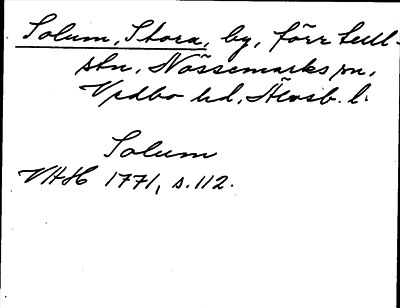 Solum, Stora, by, förr tull-
stn, Nössemarks sn,
Vedbo hd, Älvsb. l.
Solum
VHH 1771, s. 112.